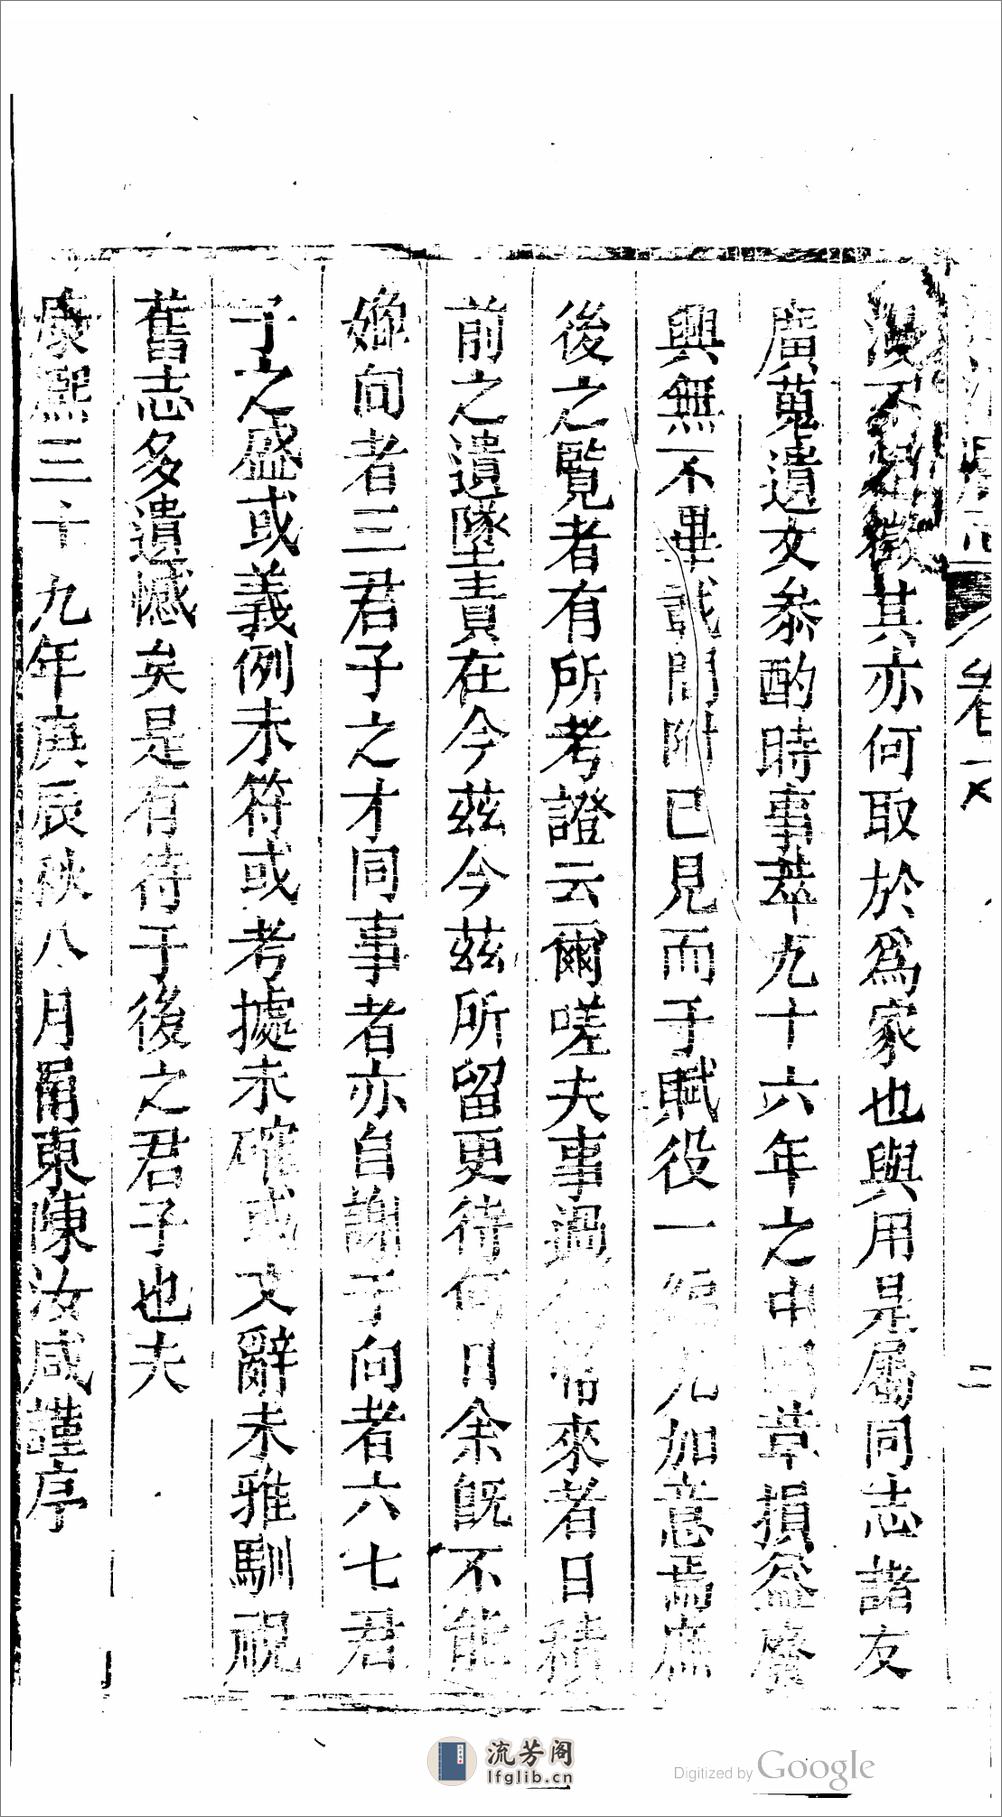 漫不足徵其亦何取於爲家也與用是屬同志諸友
廣蒐遺文叅酌時事萃九十六年之中因革損益廢
興無不畢載間附己見而于賦役一編尤加意焉庶
後之覧者有所考證云爾嗟夫事過來者日積
前之遺墜責在今茲今茲所留更待何日余旣不能
嫓向者三君子之才同事者亦自謝于向者六七君
子之盛或義例未符或考據未確或文辭未雅馴視
舊志多遺憾矣是有待于後之君子也夫
康熙三十九年庚辰秋八月甬東陳汝咸謹序
卷
二
流芳阁
lfglib.cn
Digitized by Google